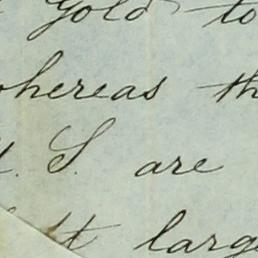 Gold to
whereas th
S. are
larg